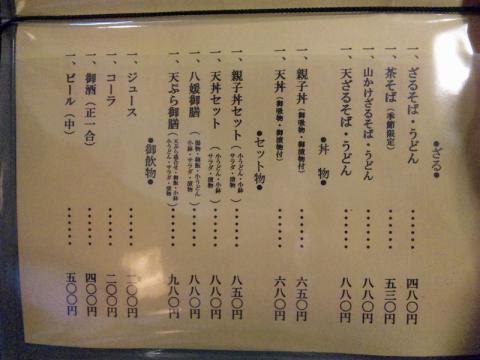 ●ざる●
一、ざるそば・うどん ・・・・・・・ 四八〇円
一、茶そば(季節限定) ・・・・・・・ 五三〇円
一、山かけざるそば・うどん ・・・・・・・ 八八〇円
一、天ざるそば・うどん ・・・・・・・ 八八〇円
●丼 物●
一、親子丼(御吸物・御漬物付) ・・・・・・・ 六五〇円
一、天丼(御吸物・御漬物付) ・・・・・・・ 六八〇円
●セット物●
一、親子丼セット(小うどん・小鉢 サラダ・漬物) ・・・・・・・ 八五〇円
一、天丼セット(小うどん・小鉢 サラダ・漬物) ・・・・・・・ 八八〇円
一、八媛御膳(鍋物・御飯・小うどん 小鉢・サラダ・漬物) ・・・・・・・ 八八〇円
一、天ぷら御膳(天ぷら盛合せ・御飯・小鉢 小うどん・サラダ・漬物) ・・・・・・・ 九八〇円
●御飲物●
一、ジュース ・・・・・・・ 二〇〇円
一、コーラ ・・・・・・・ 二〇〇円
一、御酒(正一合) ・・・・・・・ 四〇〇円
一、ビール(中) ・・・・・・・ 五〇〇円